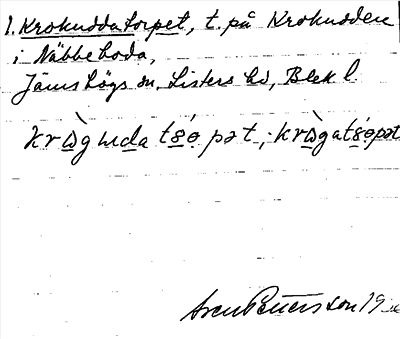 1. Krokuddatorpet, t. på Krokudden
i Näbbeboda,
Jämshögs sn, Listers hd, Blek l.
kròguda tsopət; krògatsopət
Sven Petersson 19